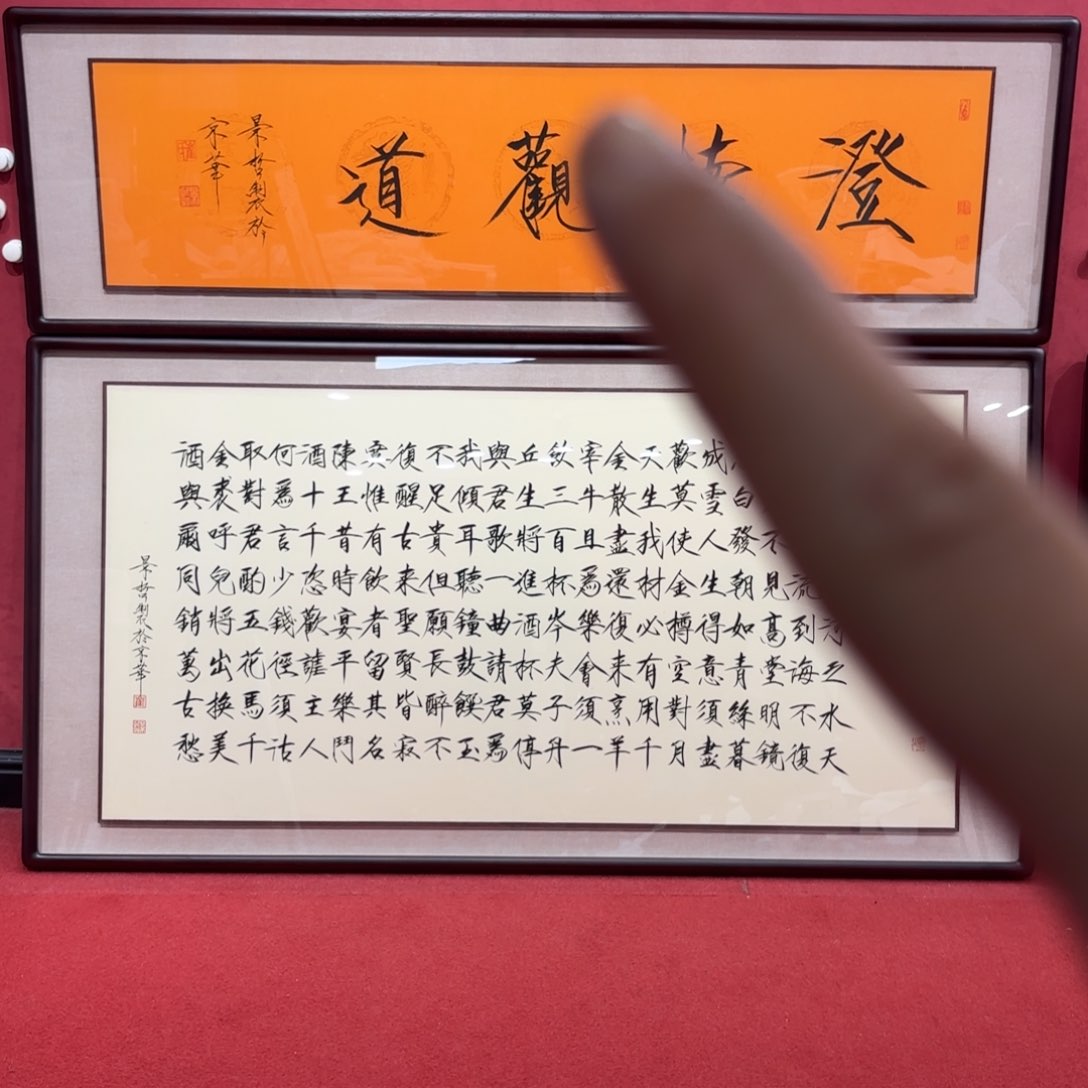 澄觀道
景哲製於
京華
之水天
流到海不復
不見高堂明鏡
白發朝如青絲暮
成雪人生得意須盡
歡莫使金樽空對月
天生我材必有用千
金散盡還復来烹羊
宰牛且爲樂會須一
飲三百杯岑夫子丹
丘生將進酒杯莫停
與君歌一曲請君爲
我傾耳聽鐘鼓饌玉
不足貴但願長醉不
復醒古来聖賢皆寂
寞惟有飲者留其名
陳王昔時宴平樂鬥
酒十千恣歡謔主人
何爲言少錢徑須沽
取對君酌五花馬千
金裘呼兒將出換美
酒與爾同銷萬古愁
景哲製於京華